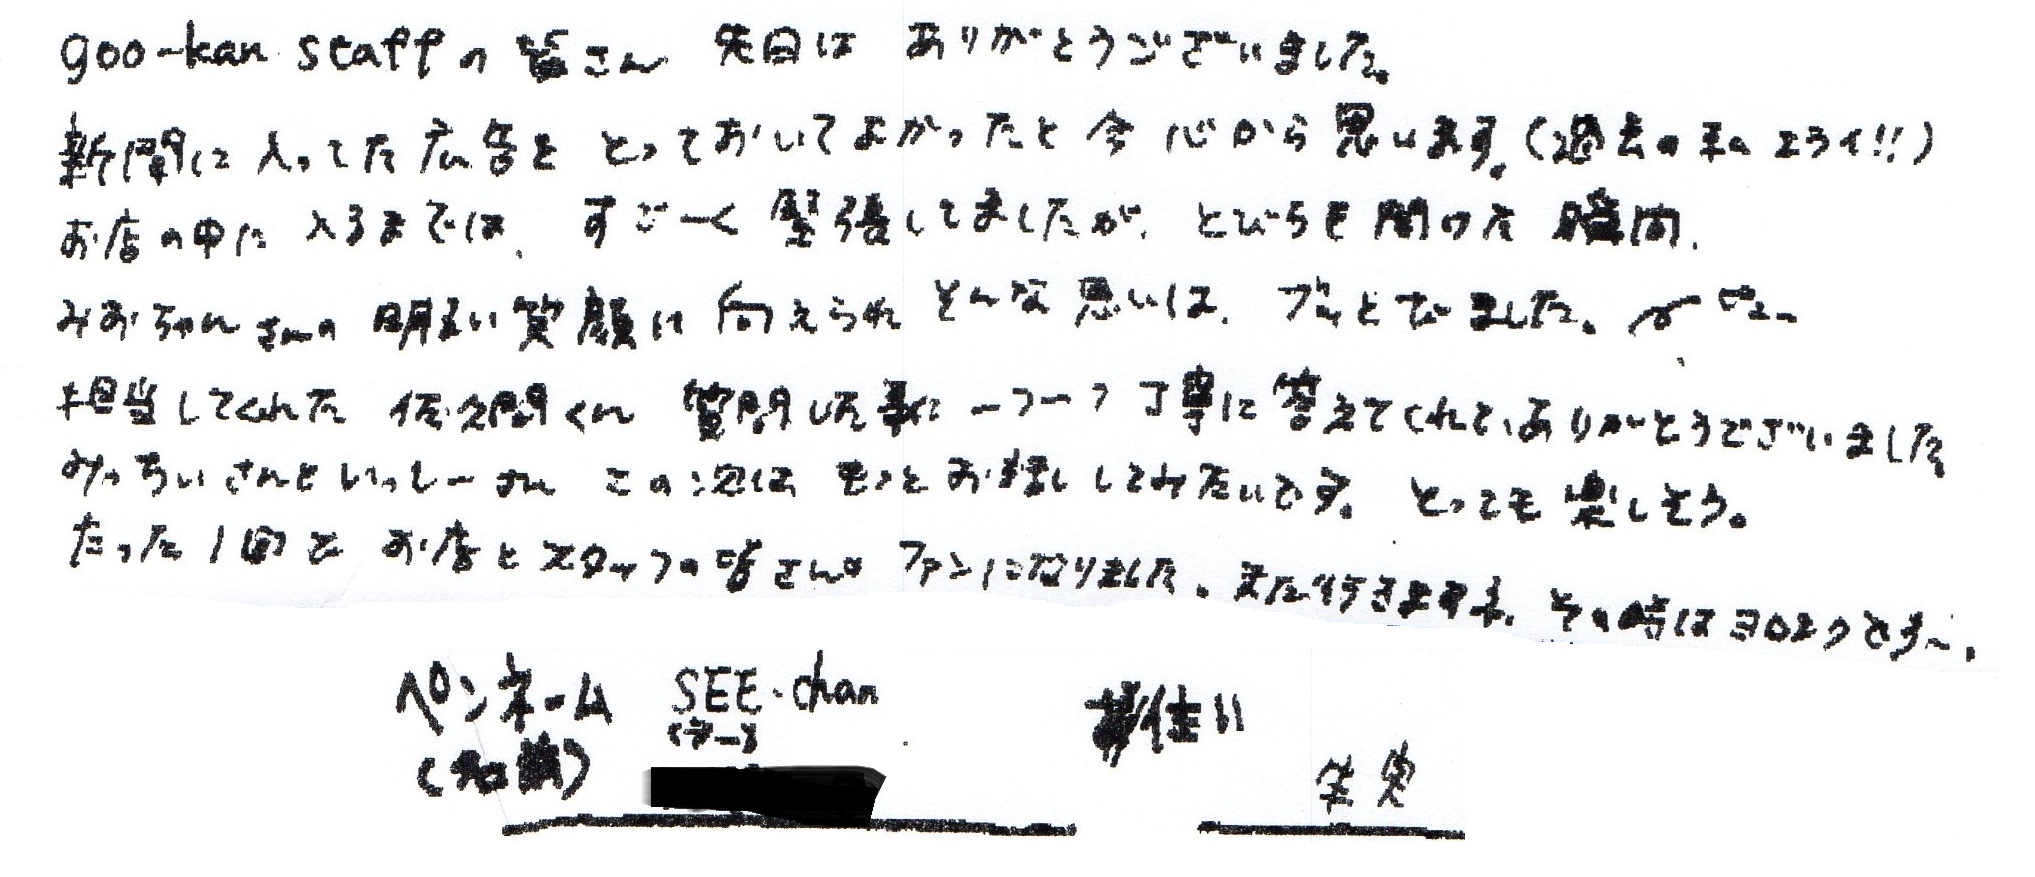 goo-kan staffの皆さん 先日は ありがとうございました。
新聞に入ってた広告を とっておいてよかったと今 心から思います。(過去の私エライ!!)
お店の中に入るまでは、すごーく緊張してましたが、とびらを開けた瞬間、
みおちゃんさんの明るい笑顔に向えられ そんな思いは、ブッとびました。
担当してくれた佐久間くん 質問した事に一つ一つ丁寧に答えてくれて、ありがとうございました
みっちぃさんといっしーさん この次は もっとお話ししてみたいです。とっても楽しそう。
たった1回で お店とスタッフの皆さんの ファンになりました。また行きますネ、その時はヨロシク
ペンネーム SEE-chan
(シー)
(名前)
お住い